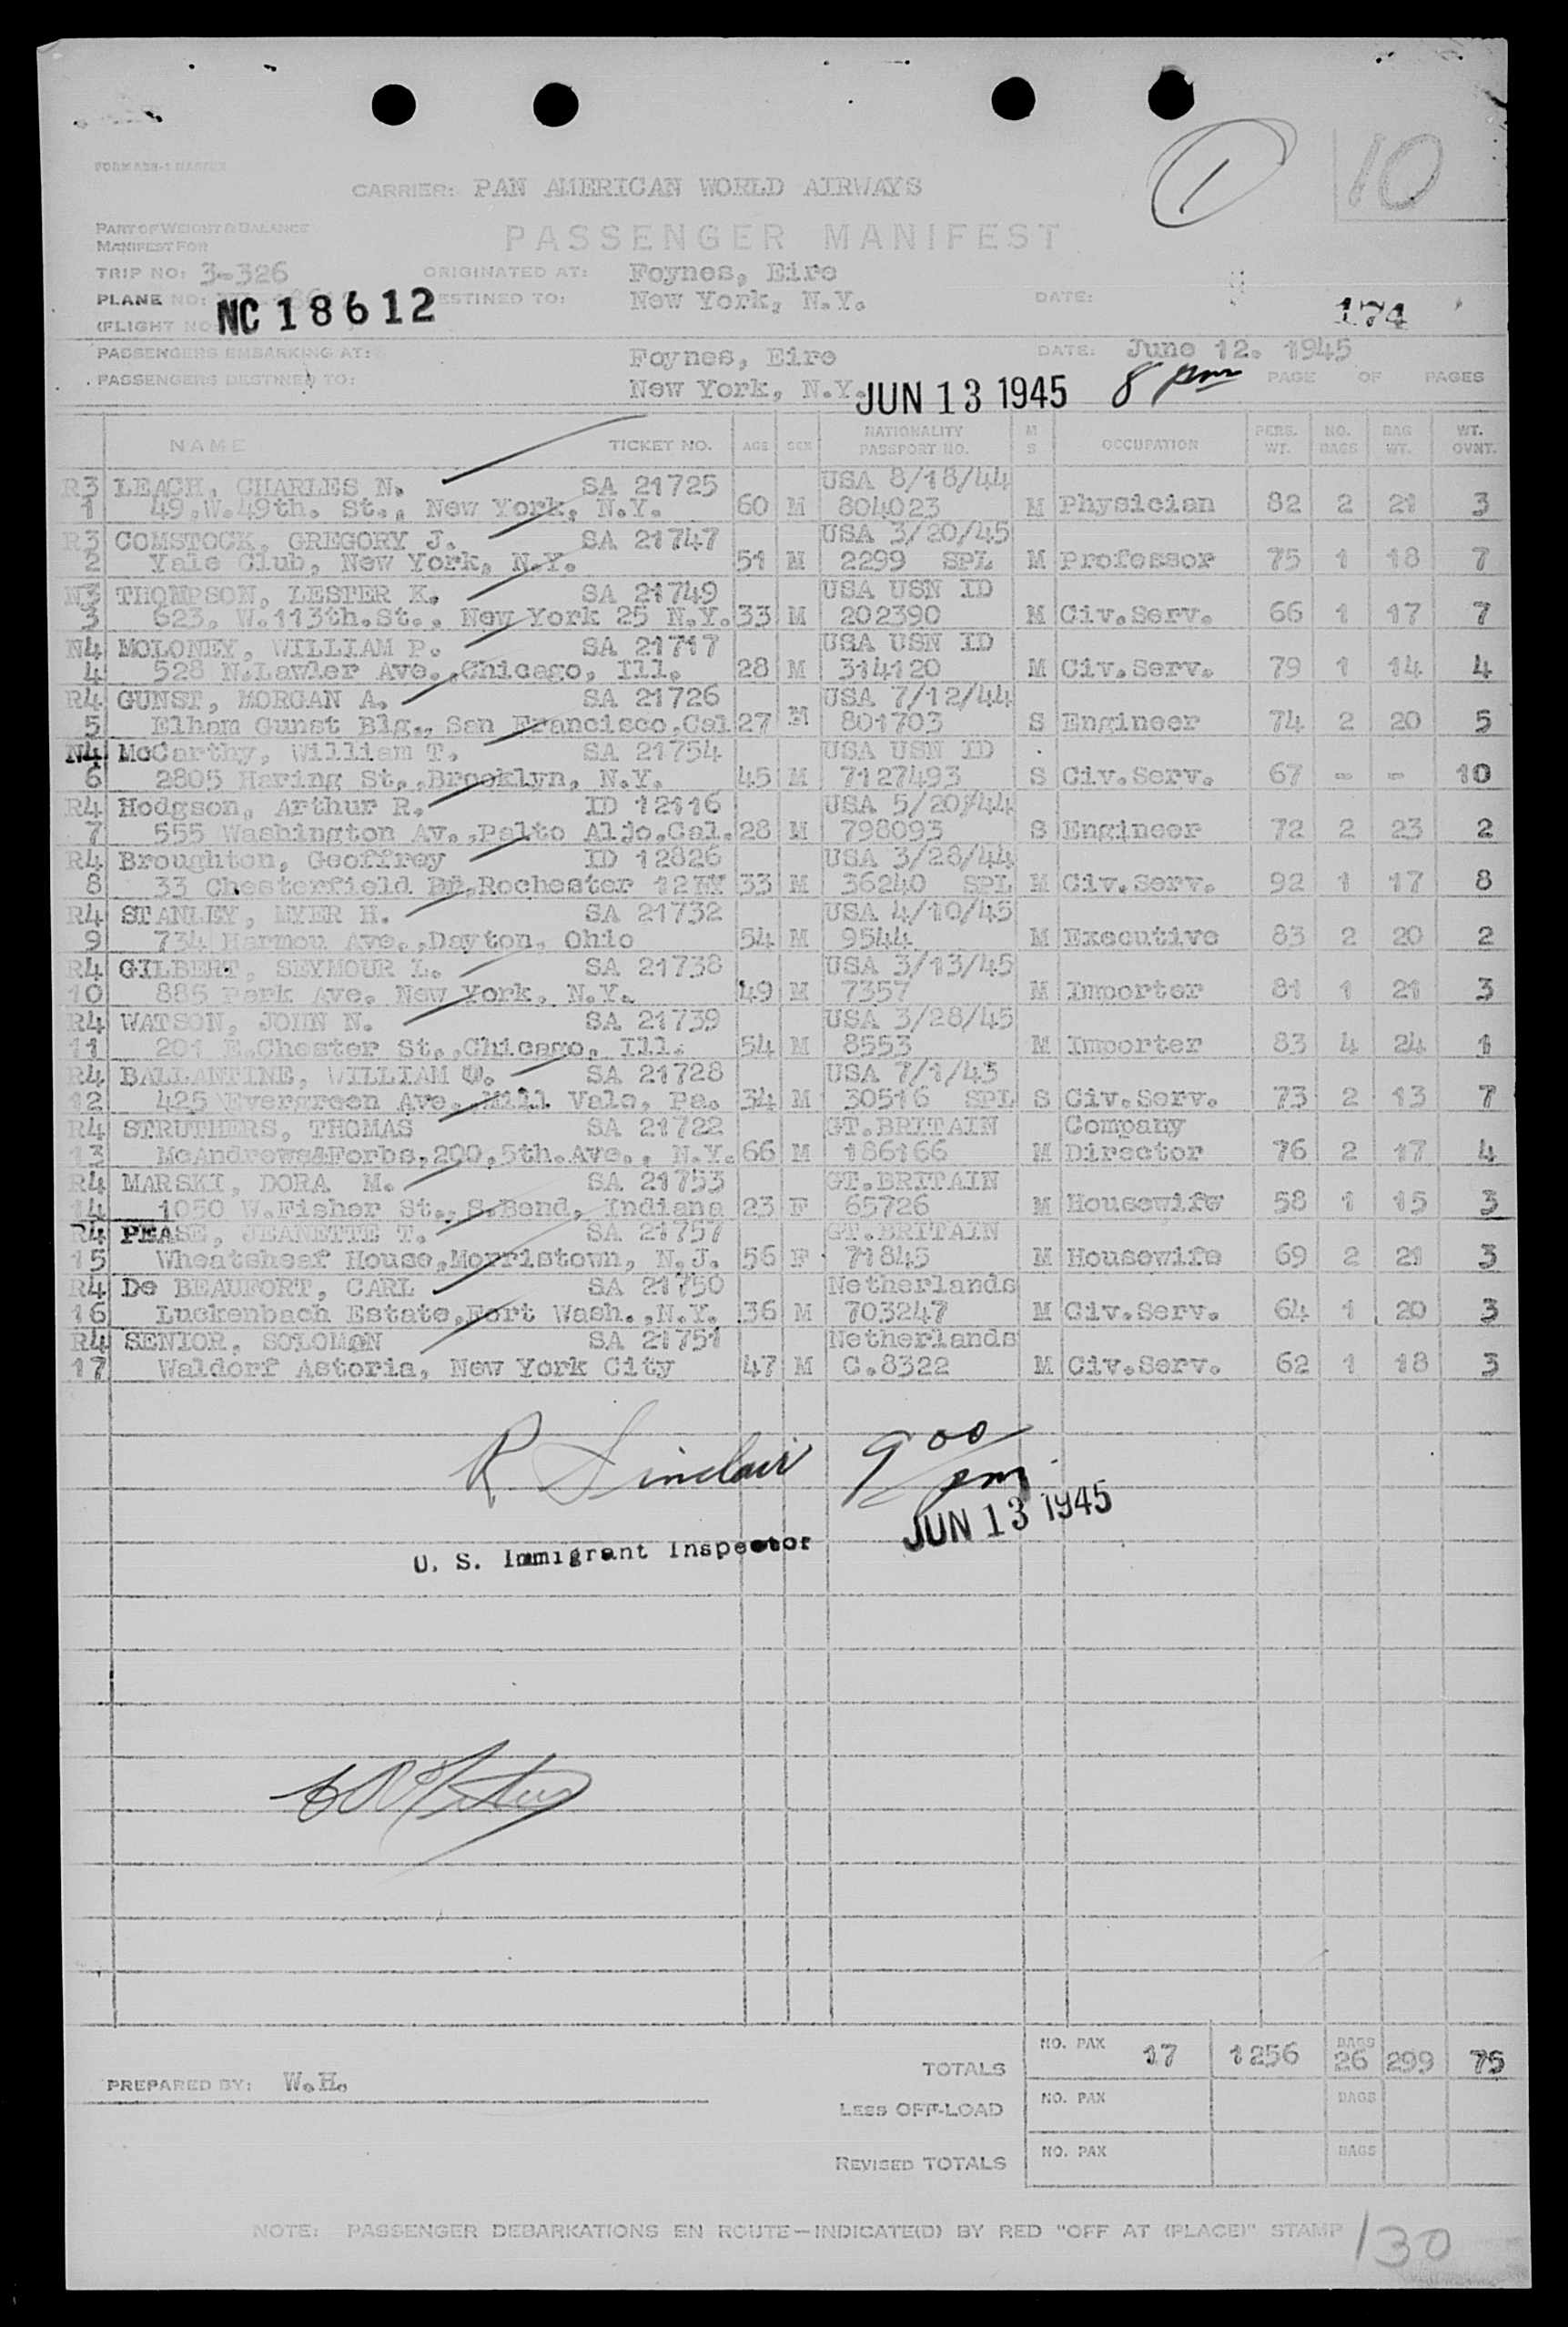 FORM A28-1 MASTER
1
10
CARRIER: PAN AMERICAN WORLD AIRWAYS
PART OF WEIGHT & BALANCE
MANIFEST FOR
PASSENGER MANIFEST
TRIP NO: 3-326 ORIGINATED AT: Foynes, Eire
PLANE NO: NC 18612 DESTINED TO: New York, N.Y. DATE:
(FLIGHT NO 174
PASSENGERS EMBARKING AT: Foynes, Eire DATE: June 12. 1945
PASSENGERS DESTINED TO: New York, N.Y. JUN 13 1945 8 pm PAGE OF PAGES
NAME TICKET NO. AGE SEX NATIONALITY PASSPORT NO. M S OCCUPATION PERS. WT. NO. BAGS BAG WT. WT. OVNT.
R3 LEACH, CHARLES N. SA 21725 USA 8/18/44
1 49.W.49th. St., New York, N.Y. 60 M 804023 M Physician 82 2 21 3
R3 COMSTOCK, GREGORY J. SA 21747 USA 3/20/45
2 Yale Club, New York, N.Y. 51 M 2299 SPL M Professor 75 1 18 7
N3 THOMPSON, LESTER K. SA 21749 USA USN ID
3 623, W.113th.St., New York 25 N.Y. 33 M 202390 M Civ.Serv. 66 1 17 7
N4 MOLONEY, WILLIAM P. SA 21717 USA USN ID
4 528 N.Lawler Ave.,Chicago, Ill. 28 M 314120 M Civ.Serv. 79 1 14 4
R4 GUNST, MORGAN A. SA 21726 USA 7/12/44
5 Elham Gunst Blg., San Francisco,Cal 27 M 801703 S Engineer 74 2 20 5
N4 McCarthy, William T. SA 21754 USA USN ID
6 2805 Haring St.,Brooklyn, N.Y. 45 M 7127493 S Civ.Serv. 67 - - 10
R4 Hodgson, Arthur R. ID 12116 USA 5/20/44
7 555 Washington Av.,Palto Aljo.Cal. 28 M 798093 S Engineer 72 2 23 2
R4 Broughton, Geoffrey ID 12826 USA 3/28/44
8 33 Chesterfield DR,Rochester 12NY 33 M 36240 SPL M Civ.Serv. 92 1 17 8
R4 STANLEY, MYER H. SA 21732 USA 4/10/45
9 734 Harmon Ave.,Dayton, Ohio 54 M 9544 M Executive 83 2 20 2
R4 GILBERT, SEYMOUR L. SA 21738 USA 3/13/45
10 885 Park Ave. New York, N.Y. 49 M 7357 M Importer 81 1 21 3
R4 WATSON, JOHN N. SA 21739 USA 3/28/45
11 201 E.Chester St.,Chicago, Ill. 54 M 8553 M Importer 83 4 24 1
R4 BALLANTINE, WILLIAM W. SA 21728 USA 7/1/43
12 425 Evergreen Ave. Mill Vale, Pa. 34 M 30516 SPL S Civ.Serv. 73 2 13 7
R4 STRUTHERS, THOMAS SA 21722 GT.BRITAIN Company
13 McAndrews&Forbs,200,5th.Ave., N.Y. 66 M 186166 M Director 76 2 17 4
R4 MARSKI, DORA M. SA 21753 GT.BRITAIN
14 1050 W.Fisher St., S.Bend, Indiana 23 F 65726 M Housewife 58 1 15 3
R4 PEASE, JEANETTE T. SA 21757 GT.BRITAIN
15 Wheatsheaf House,Morristown, N.J. 56 F 71845 M Housewife 69 2 21 3
R4 De BEAUFORT, CARL SA 21750 Netherlands
16 Luckenbach Estate,Fort Wash.,N.Y. 36 M 703247 M Civ.Serv. 64 1 20 3
R4 SENIOR, SOLOMON SA 21751 Netherlands
17 Waldorf Astoria, New York City 47 M C.8322 M Civ.Serv. 62 1 18 3
R Sinclair 9 00 pm
U. S. Immigrant Inspector JUN 13 1945
TOTALS NO. PAX 17 1256 BAGS 26 299 75
PREPARED BY: W.H.
LESS OFF-LOAD NO. PAX BAGS
REVISED TOTALS NO. PAX BAGS
NOTE: PASSENGER DEBARKATIONS EN ROUTE—INDICATE(D) BY RED "OFF AT (PLACE)" STAMP
130